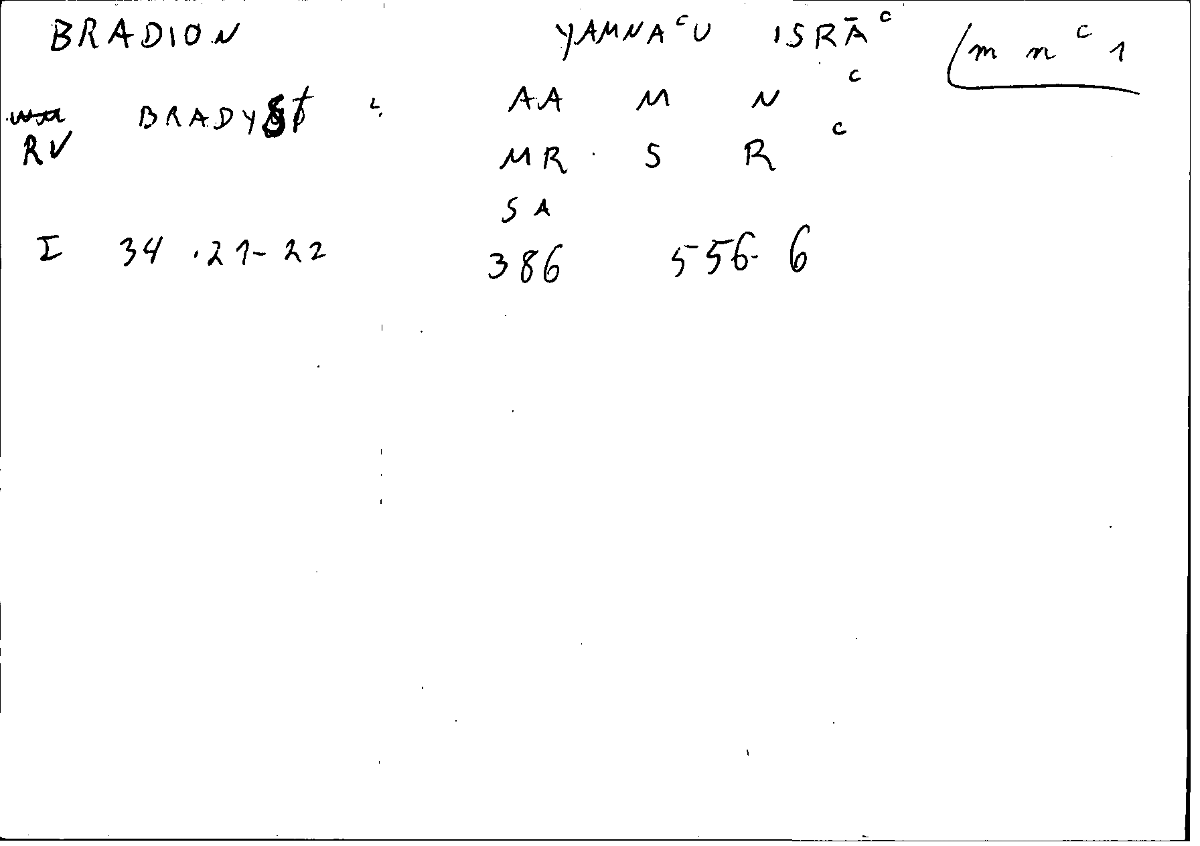 BRADION YAMNAᶜU ISRĀᶜ m nᶜ 1
BRADY AA M Nᶜ
RV MR . S Rᶜ
SA
I 34 .21-22 386 556-6